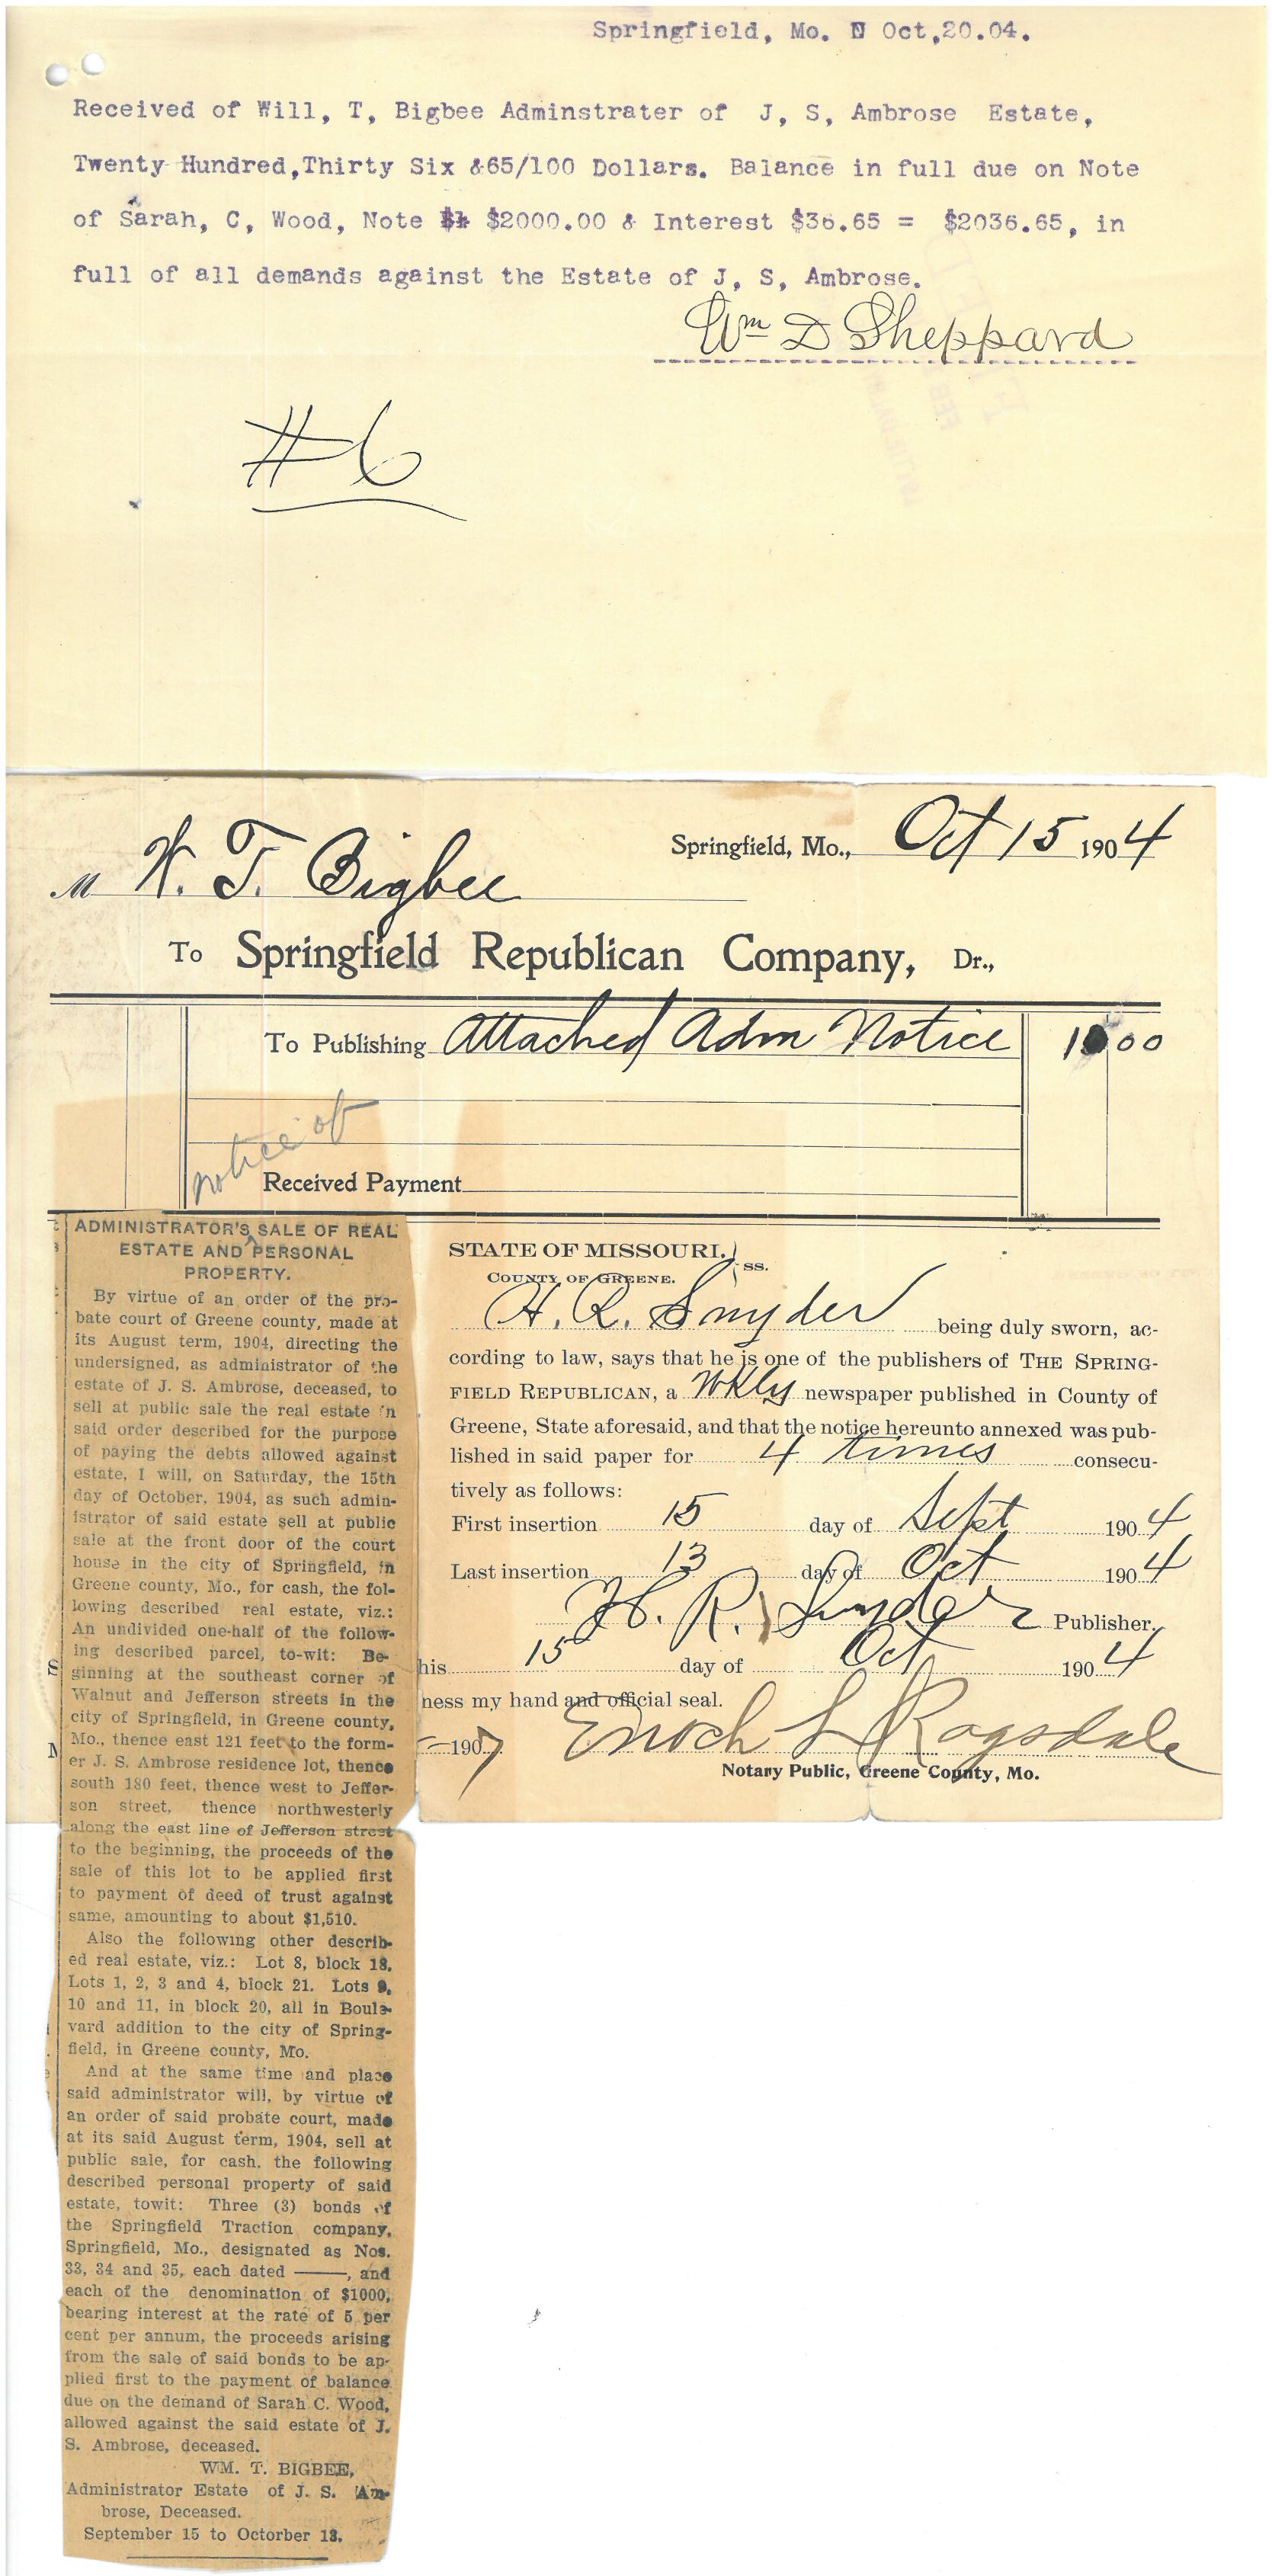 Springfield, Mo. Oct,20.04.
Received of Will, T, Bigbee Adminstrater of J, S, Ambrose Estate,
Twenty Hundred,Thirty Six &65/100 Dollars. Balance in full due on Note
of Sarah, C, Wood, Note $1 $2000.00 & Interest $36.65 = $2036.65, in
full of all demands against the Estate of J, S, Ambrose.
Wm D Sheppard
#6
Springfield, Mo., Oct 15 1904
M W. T. Bigbee
To Springfield Republican Company, Dr.,
To Publishing Attached Adm Notice 1000
notice of
Received Payment
ADMINISTRATOR'S SALE OF REAL
ESTATE AND PERSONAL
PROPERTY.
By virtue of an order of the pro-
bate court of Greene county, made at
its August term, 1904, directing the
undersigned, as administrator of the
estate of J. S. Ambrose, deceased, to
sell at public sale the real estate in
said order described for the purpose
of paying the debts allowed against
estate, I will, on Saturday, the 15th
day of October, 1904, as such admin-
istrator of said estate sell at public
sale at the front door of the court
house in the city of Springfield, in
Greene county, Mo., for cash, the fol-
lowing described real estate, viz.:
An undivided one-half of the follow-
ing described parcel, to-wit: Be-
ginning at the southeast corner of
Walnut and Jefferson streets in the
city of Springfield, in Greene county,
Mo., thence east 121 feet to the form-
er J. S. Ambrose residence lot, thence
south 180 feet, thence west to Jeffer-
son street, thence northwesterly
along the east line of Jefferson street
to the beginning, the proceeds of the
sale of this lot to be applied first
to payment of deed of trust against
same, amounting to about $1,510.
Also the following other describ-
ed real estate, viz.: Lot 8, block 18.
Lots 1, 2, 3 and 4, block 21. Lots 9,
10 and 11, in block 20, all in Boule-
vard addition to the city of Spring-
field, in Greene county, Mo.
And at the same time and place
said administrator will, by virtue of
an order of said probate court, made
at its said August term, 1904, sell at
public sale, for cash, the following
described personal property of said
estate, towit: Three (3) bonds of
the Springfield Traction company,
Springfield, Mo., designated as Nos.
33, 34 and 35, each dated ——, and
each of the denomination of $1000,
bearing interest at the rate of 5 per
cent per annum, the proceeds arising
from the sale of said bonds to be ap-
plied first to the payment of balance
due on the demand of Sarah C. Wood,
allowed against the said estate of J.
S. Ambrose, deceased.
WM. T. BIGBEE,
Administrator Estate of J. S. Am-
brose, Deceased.
September 15 to Octorber 13.
STATE OF MISSOURI. } ss.
COUNTY OF GREENE.
H. R. Snyder being duly sworn, ac-
cording to law, says that he is one of the publishers of THE SPRING-
FIELD REPUBLICAN, a Wkly newspaper published in County of
Greene, State aforesaid, and that the notice hereunto annexed was pub-
lished in said paper for 4 times consecu-
tively as follows:
First insertion 15 day of Sept 1904
Last insertion 13 day of Oct 1904
H. R. Snyder Publisher.
his 15 day of Oct 1904
ness my hand and official seal.
1907 Enoch L Ragsdale
Notary Public, Greene County, Mo.